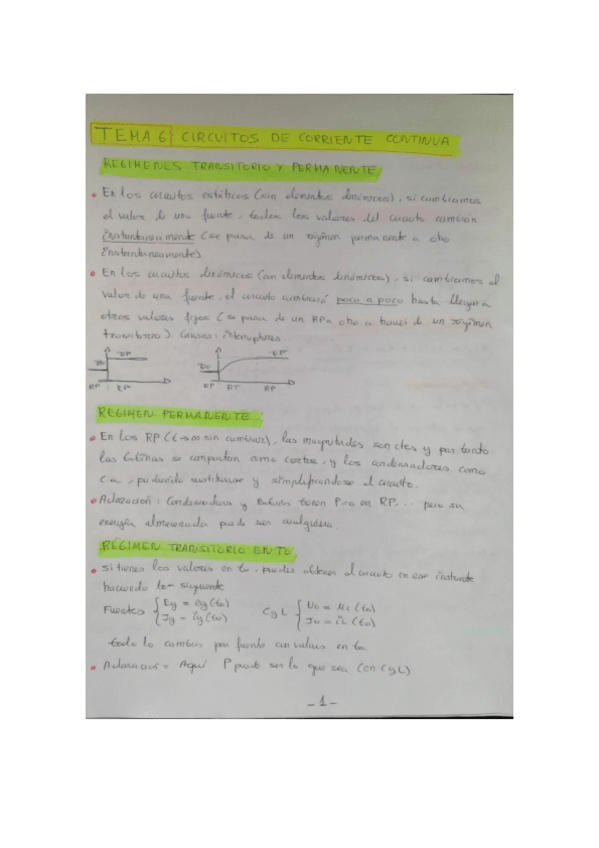 TEMA 6 CIRCUITOS DE CORRIENTE CONTINUA
REGIMENES TRANSITORIO Y PERMANENTE
• En los circuitos estáticos (sin elementos dinámicos), si cambiamos
el valor de una fuente, todos los valores del circuito cambian
instantáneamente (se pasa de un régimen permanente a otro
instantáneamente)
• En los circuitos dinámicos (con elementos dinámicos), si cambiamos el
valor de una fuente, el circuito cambiará poco a poco hasta llegar a
otros valores fijos (se pasa de un RP a otro a través de un régimen
transitorio). Causas: interruptores
RP RP RP RT RP
REGIMEN PERMANENTE
• En los RP (t→∞ sin cambios), las magnitudes son ctes y por tanto
las bobinas se comportan como cortos, y los condensadores como
c.a, pudiendo sustituirse y simplificándose el circuito.
• Aclaración: Condensadores y bobinas tienen P=0 en RP... pero su
energía almacenada puede ser cualquiera.
RÉGIMEN TRANSITORIO EN to
• si tienes los valores en to, puedes obtener el circuito en ese instante
haciendo lo siguiente
Fuentes { Eg = eg(to) C y L { Uo = uc(to)
Jg = ig(to) Io = iL(to)
todo lo cambio por fuente con valores en to
• Aclaración = Aquí P puede ser lo que sea (en C y L)
- 1 -